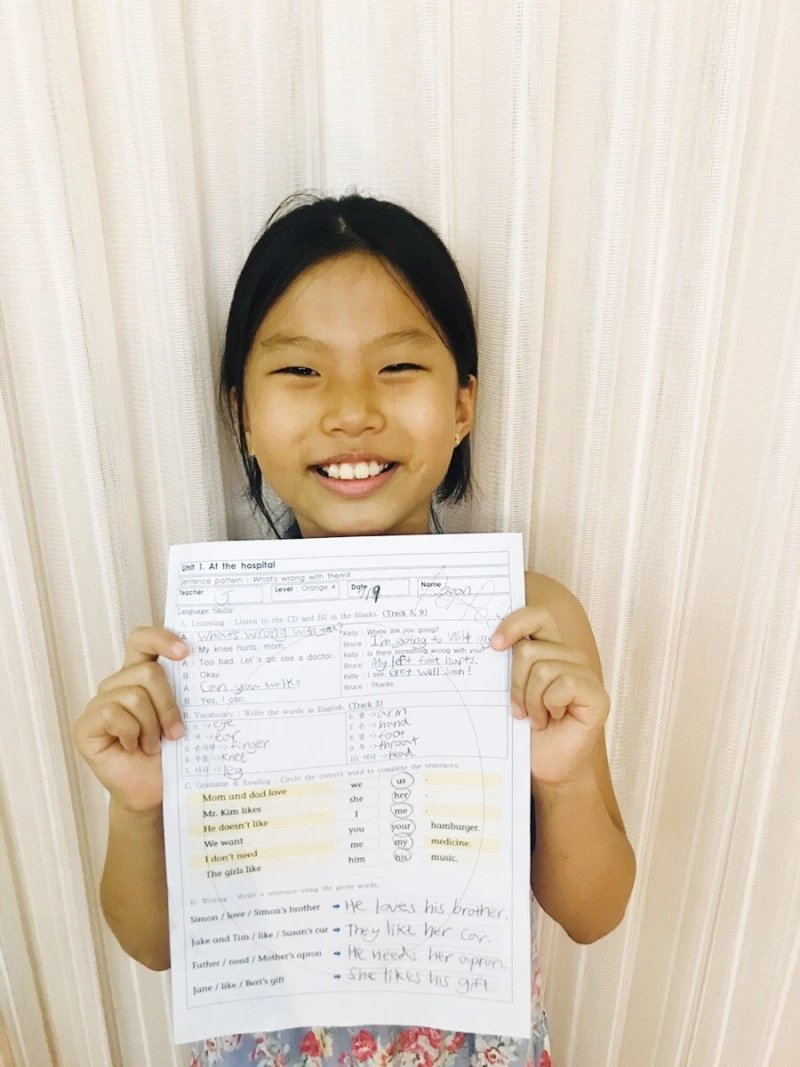 Unit 1. At the hospital
Sentence pattern : What's wrong with them?
Teacher J Level : Orange 4 Date 7/9 Name
Language Skills:
A. Listening : Listen to the CD and fill in the blanks. (Track 5, 9)
A : What's wrong with
B : My knee hurts, mom.
A : Too bad. Let's go see a doctor.
B : Okay.
A : Can you walk?
B : Yes, I can.
Kelly : Where are you going?
Bruce : I'm going to visit
Kelly : Is there something wrong with you?
Bruce : My left foot hurts.
Kelly : I see. Get well soon!
Bruce : Thanks.
B. Vocabulary : Write the words in English. (Track 3)
1. 눈 -> eye
2. 귀 -> ear
3. 손가락 -> finger
4. 무릎 -> knee
5. 다리 -> leg
6. 팔 -> arm
7. 손 -> hand
8. 발 -> foot
9. 목 -> throat
10. 머리 -> head
C. Grammar & Reading : Circle the correct word to complete the sentences.
Mom and dad love we us .
Mr. Kim likes she her .
He doesn't like I me .
We want you your hamburger.
I don't need me my medicine.
The girls like him his music.
D. Writing : Write a sentence using the given words.
Simon / love / Simon's brother ➡ He loves his brother.
Jake and Tim / like / Susan's car ➡ They like her car.
Father / need / Mother's apron ➡ He needs her apron.
Jane / like / Bert's gift ➡ She likes his gift.